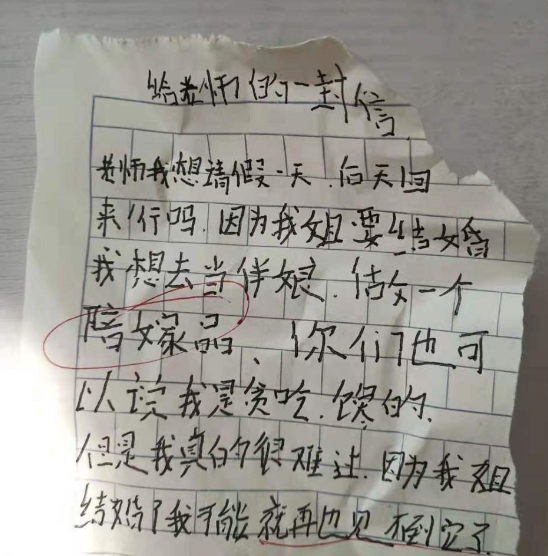 给老师们的一封信
老师我想请假一天.后天回
来行吗.因为我姐要结婚
我想去当伴娘.做一个
陪嫁品、你们也可
以说我是贪吃.馋的.
但是我真的很难过.因为我姐
结婚了我可能就再也见不到它了